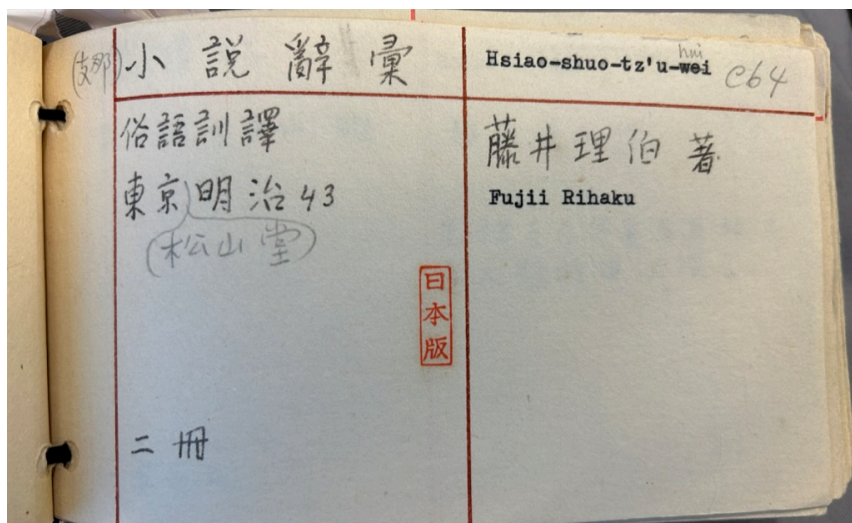 (支那)小說辭彙
俗語訓譯
東京 明治43
(松山堂)
日本版
二冊
hui
Hsiao-shuo-tz'u-wei C64
藤井理伯 著
Fujii Rihaku